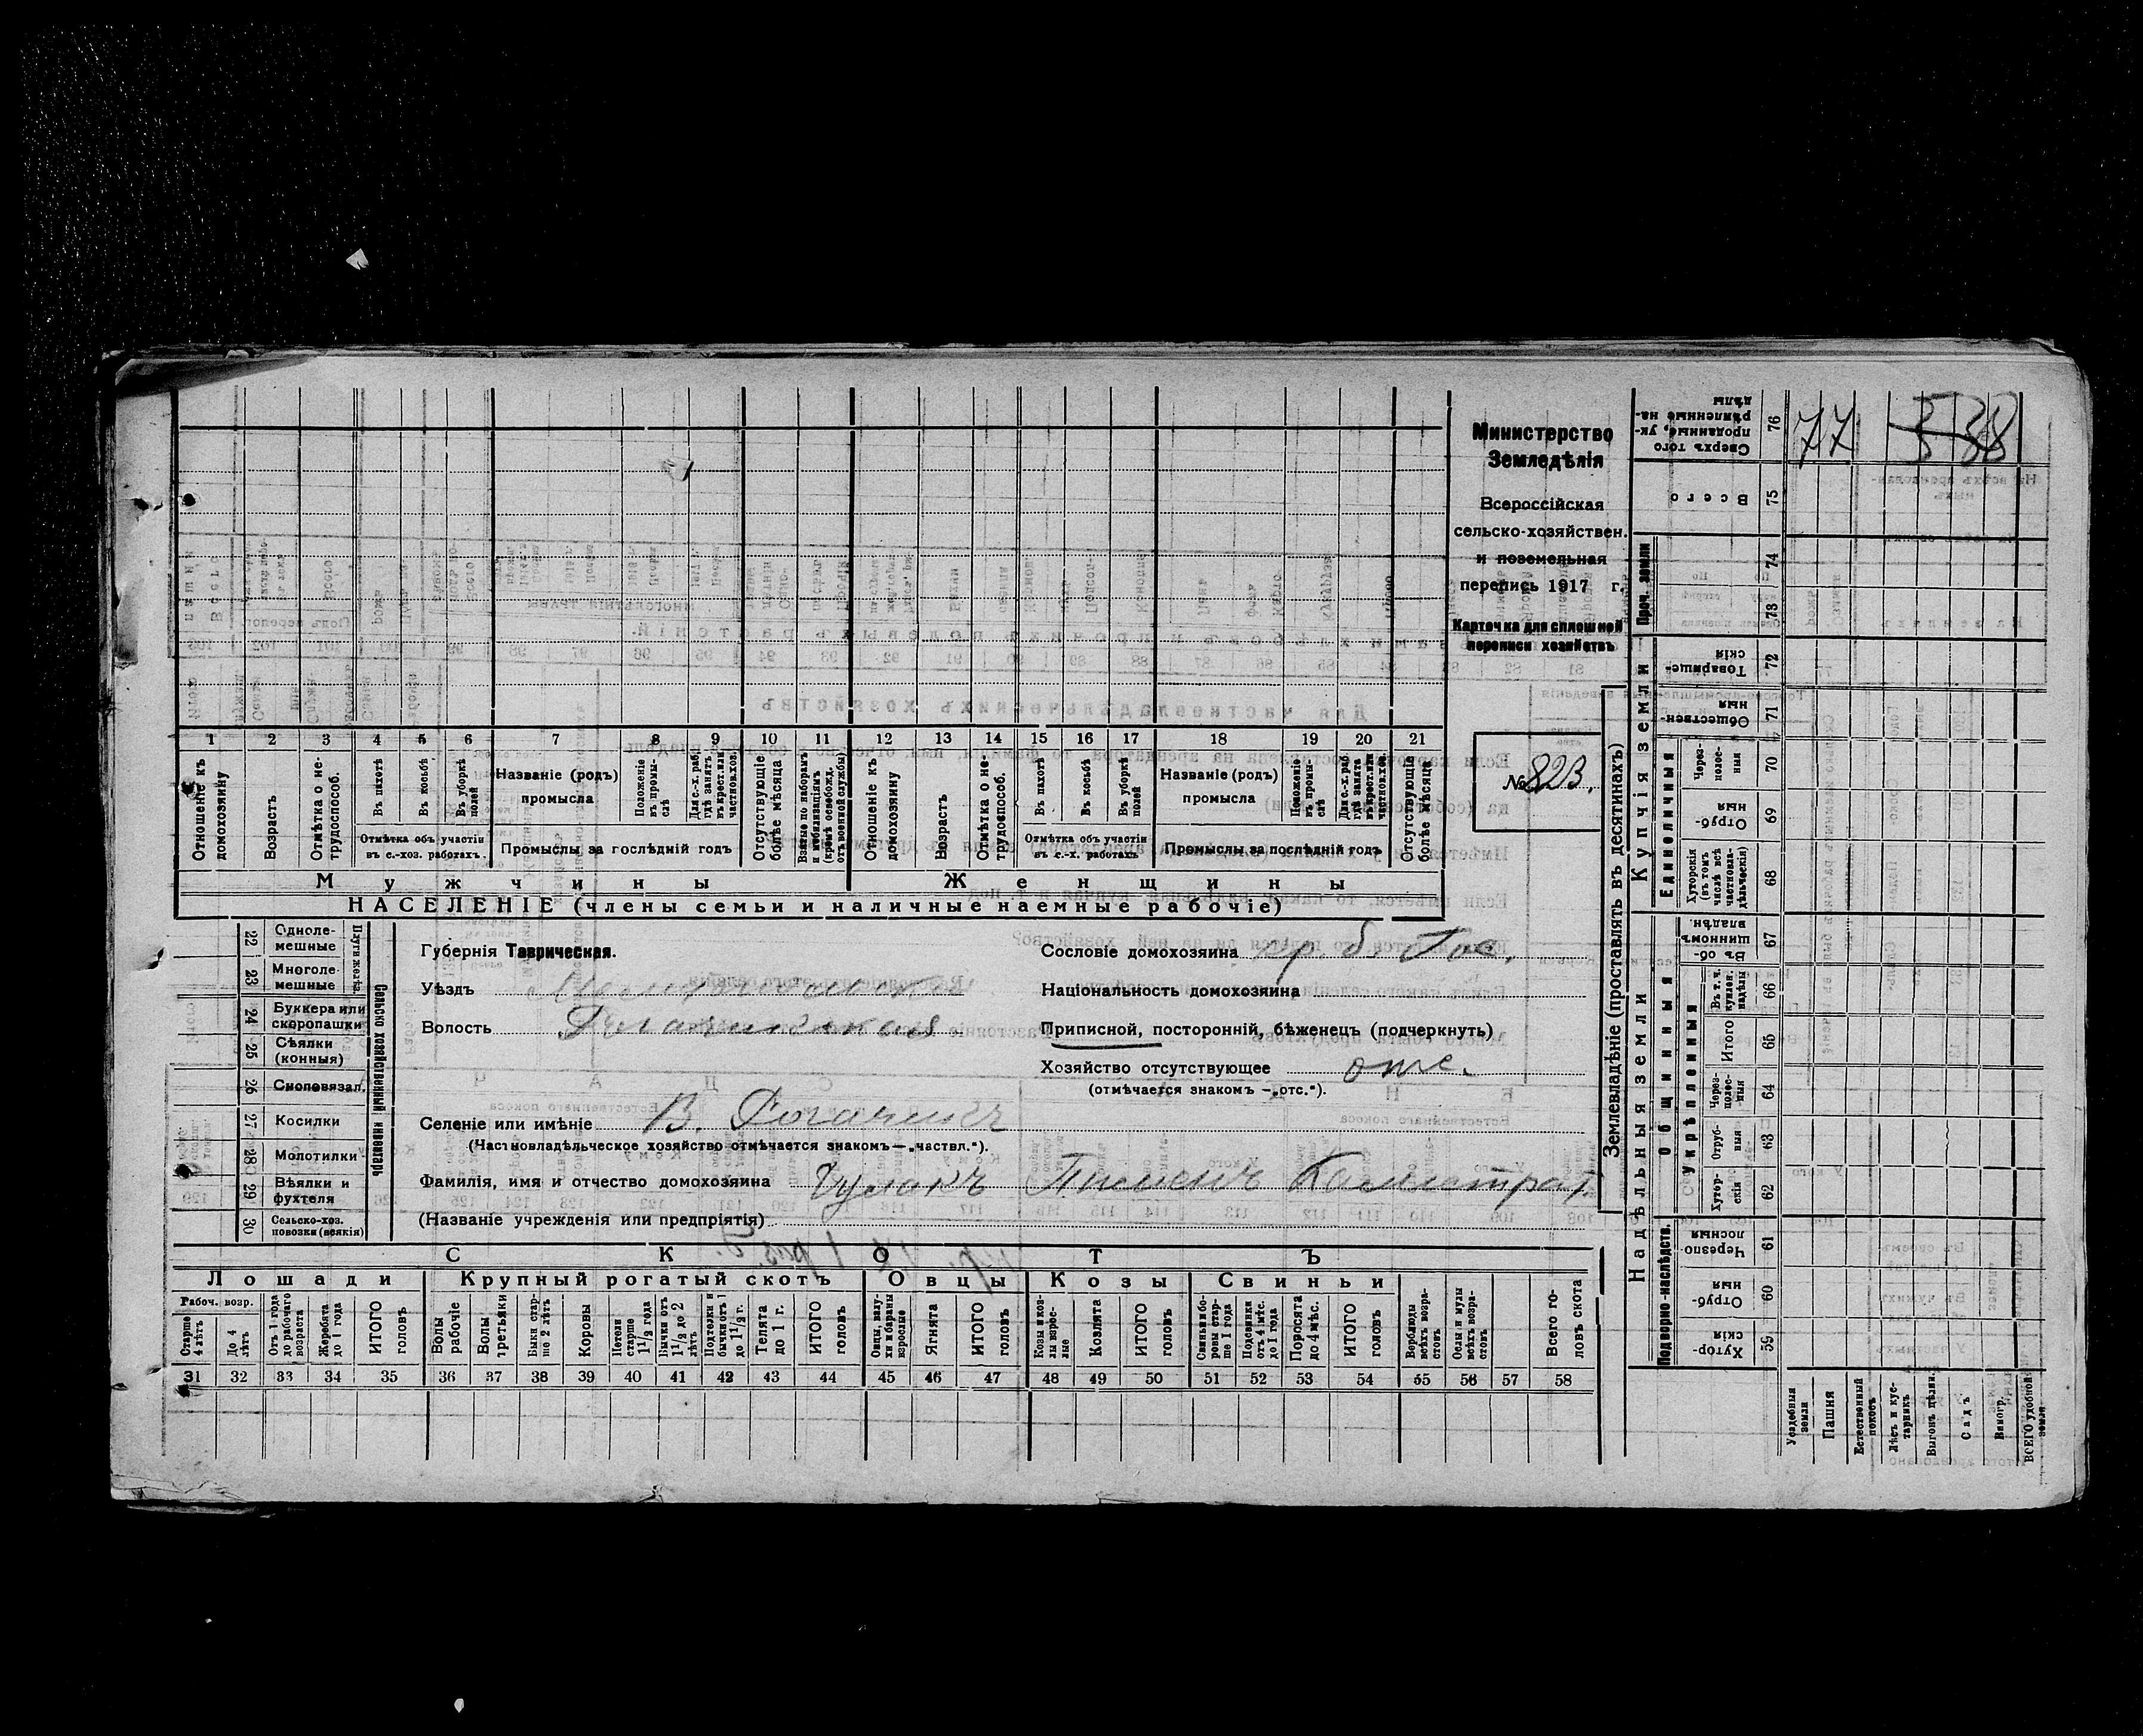 Министерство
Земледѣлія
Всероссійская
сельско-хозяйствен.
и поземельная
перепись 1917 г.
Карточка для сплошной
переписи хозяйствъ
№ 823.
77
338
1 2 3 4 5 6 7 8 9 10 11 12 13 14 15 16 17 18 19 20 21
Отношеніе къ домохозяину
Возрастъ
Отмѣтка о не-трудоспособ.
Въ пахотѣ
Въ косьбѣ
Въ уборкѣ полей
Отмѣтка объ участіи въ с.-хоз. работахъ.
Названіе (родъ) промысла
Положеніе въ промы-слѣ
Для с.-х. раб. гдѣ занятъ въ крест. или частнов. хоз.
Промыслы за послѣдній годъ
Отсутствующіе болѣе мѣсяца
Взятые по наборамъ и мобилизаціямъ (кромѣ освобожд. отъ военной службы)
Отношеніе къ домохозяину
Возрастъ
Отмѣтка о не-трудоспособ.
Въ пахотѣ
Въ косьбѣ
Въ уборкѣ полей
Отмѣтка объ участіи въ с.-х. работахъ
Названіе (родъ) промысла
Положеніе въ промы-слѣ
Для с.-х. раб. гдѣ занята въ крест. или частнов. хоз.
Промыслы за послѣдній годъ
Отсутствующіе болѣе мѣсяца
Мужчины Женщины
НАСЕЛЕНІЕ (члены семьи и наличные наемные рабочіе)
22 Одноле-мешные
23 Многоле-мешные
Плуги желѣз.
24 Буккера или скоропашки
25 Сѣялки (конныя)
26 Сноповязал.
27 Косилки
28 Молотилки
29 Вѣялки и фухтеля
30 Сельско-хоз. повозки (всякія)
Сельско хозяйственный инвентарь
Губернія Таврическая.
Уѣздъ Мелитопольскій
Волость
Сословіе домохозяина кр. б. Гос.
Національность домохозяина
Приписной, посторонній, бѣженецъ (подчеркнуть)
Хозяйство отсутствующее отс.
(отмѣчается знакомъ — „отс.“).
Селеніе или имѣніе В. Рогачикъ
(Частновладѣльческое хозяйство отмѣчается знакомъ — „частвл.“).
Фамилія, имя и отчество домохозяина Гулакъ Пименъ Каллистрат.
(Названіе учрежденія или предпріятія)
СКОТЪ
Лошади Крупный рогатый скотъ Овцы Козы Свиньи
Рабоч. возр.
Старше 4 лѣтъ
До 4 лѣтъ
Отъ 1 года до рабочаго возраста
Жеребята до 1 года
ИТОГО головъ
Волы рабочіе
Волы третьяки
Быки стар-ше 2 лѣтъ
Коровы
Нетели старше 1½ года
Бычки отъ 1½ до 2 лѣтъ
Подтелки и бычки отъ 1 до 1½ г.
Телята до 1 г.
ИТОГО головъ
Овцы, валу-хи и бараны взрослые
Ягнята
ИТОГО головъ
Козы и коз-лы взрос-лые
Козлята
ИТОГО головъ
Свиньи и бо-ровы стар-ше 1 года
Подсвинки отъ 4 мѣс. до 1 года
Поросята до 4 мѣс.
ИТОГО головъ
Верблюды всѣхъ возра-стовъ
Ослы и мулы всѣхъ возра-стовъ
Всего го-ловъ скота
31 32 33 34 35 36 37 38 39 40 41 42 43 44 45 46 47 48 49 50 51 52 53 54 55 56 57 58
Землевладѣніе (проставлять въ десятинахъ)
Надѣльныя земли
Купчія земли
Проч. земли
Подворно-наслѣдств.
Общинныя
укрѣпленныя
Единоличныя
Сверхъ того проданные, ук-рѣпленные на-дѣлы 76
Всего 75
74
73
Товарище-скія 72
Обществен-ныя 71
Через-полос-ныя 70
Отруб-ныя 69
Хуторскія (въ томъ числѣ всѣ частновла-дѣльческія) 68
Въ об-щинномъ владѣн. 67
Въ т. ч. куплен. надѣлы 66
Итого 65
Через-полос-ныя 64
Отруб-ныя 63
Хутор-скія 62
Черезпо-лосныя 61
Отруб-ныя 60
Хутор-скія 59
Усадебныя земли
Пашня
Естественный покосъ
Лѣсъ и кус-тарникъ
Выгонъ, цѣлин.
Садъ
Виногр.
ВСЕГО удобной земли